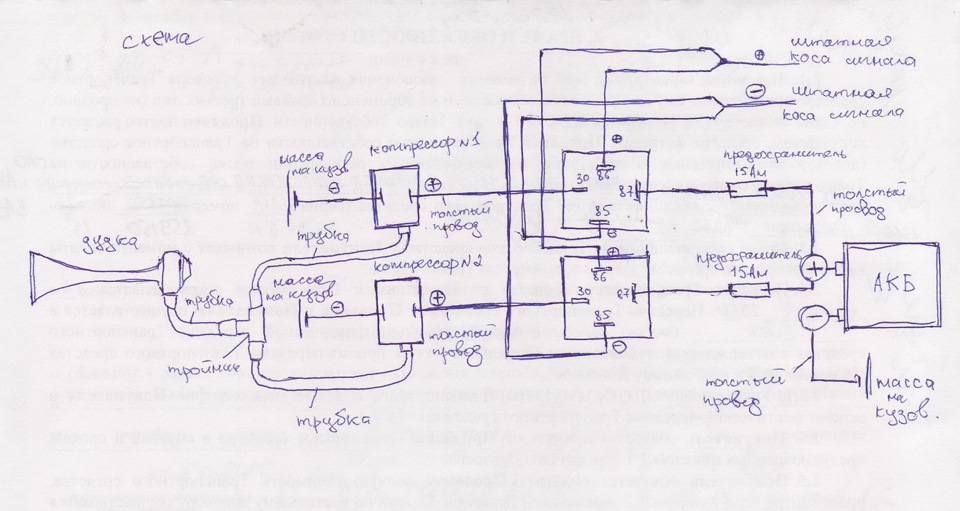 схема
⊕ штатная
коса сигнала
⊖ штатная
коса сигнала
масса
на кузов
⊖
компрессор N1
⊕
толстый
провод
30
⊕
86
87
85
⊖
предохранитель
15Ам
толстый
провод
дудка
трубка
трубка
тройник
масса
на кузов
⊖
компрессор N2
⊕
толстый
провод
30
⊕
86
87
85
⊖
предохранитель
15Ам
⊕
⊖
АКБ
толстый
провод
масса
на
кузов.
трубка